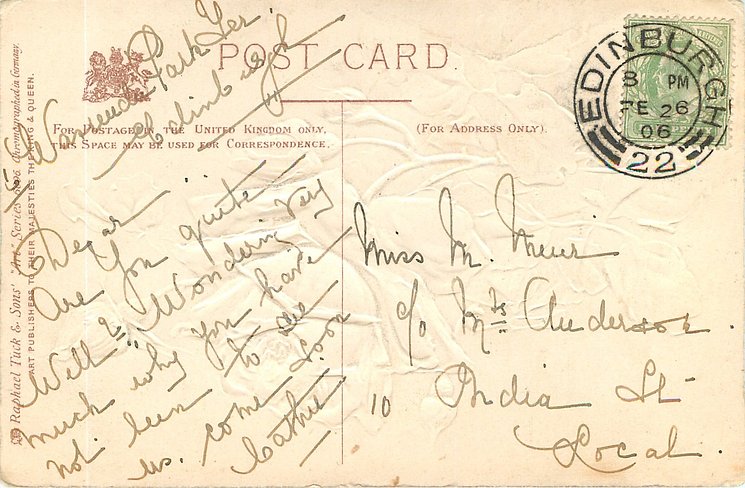 POST CARD.
FOR POSTAGE IN THE UNITED KINGDOM ONLY,
THIS SPACE MAY BE USED FOR CORRESPONDENCE.
(FOR ADDRESS ONLY).
Raphael Tuck & Sons' "Art" Series Chromographed in Germany.
ART PUBLISHERS TO THEIR MAJESTIES THE KING & QUEEN.
EDINBURGH
8 PM
FE 26
06
22
5 Warrender Park Ter.
Edinburgh
Dear
Are you quite
Well? Wondering very
much why you have
not been to see
us. come soon
Cathie
Miss M. Muir
c/o Mrs Anderson.
10 India St
Local.